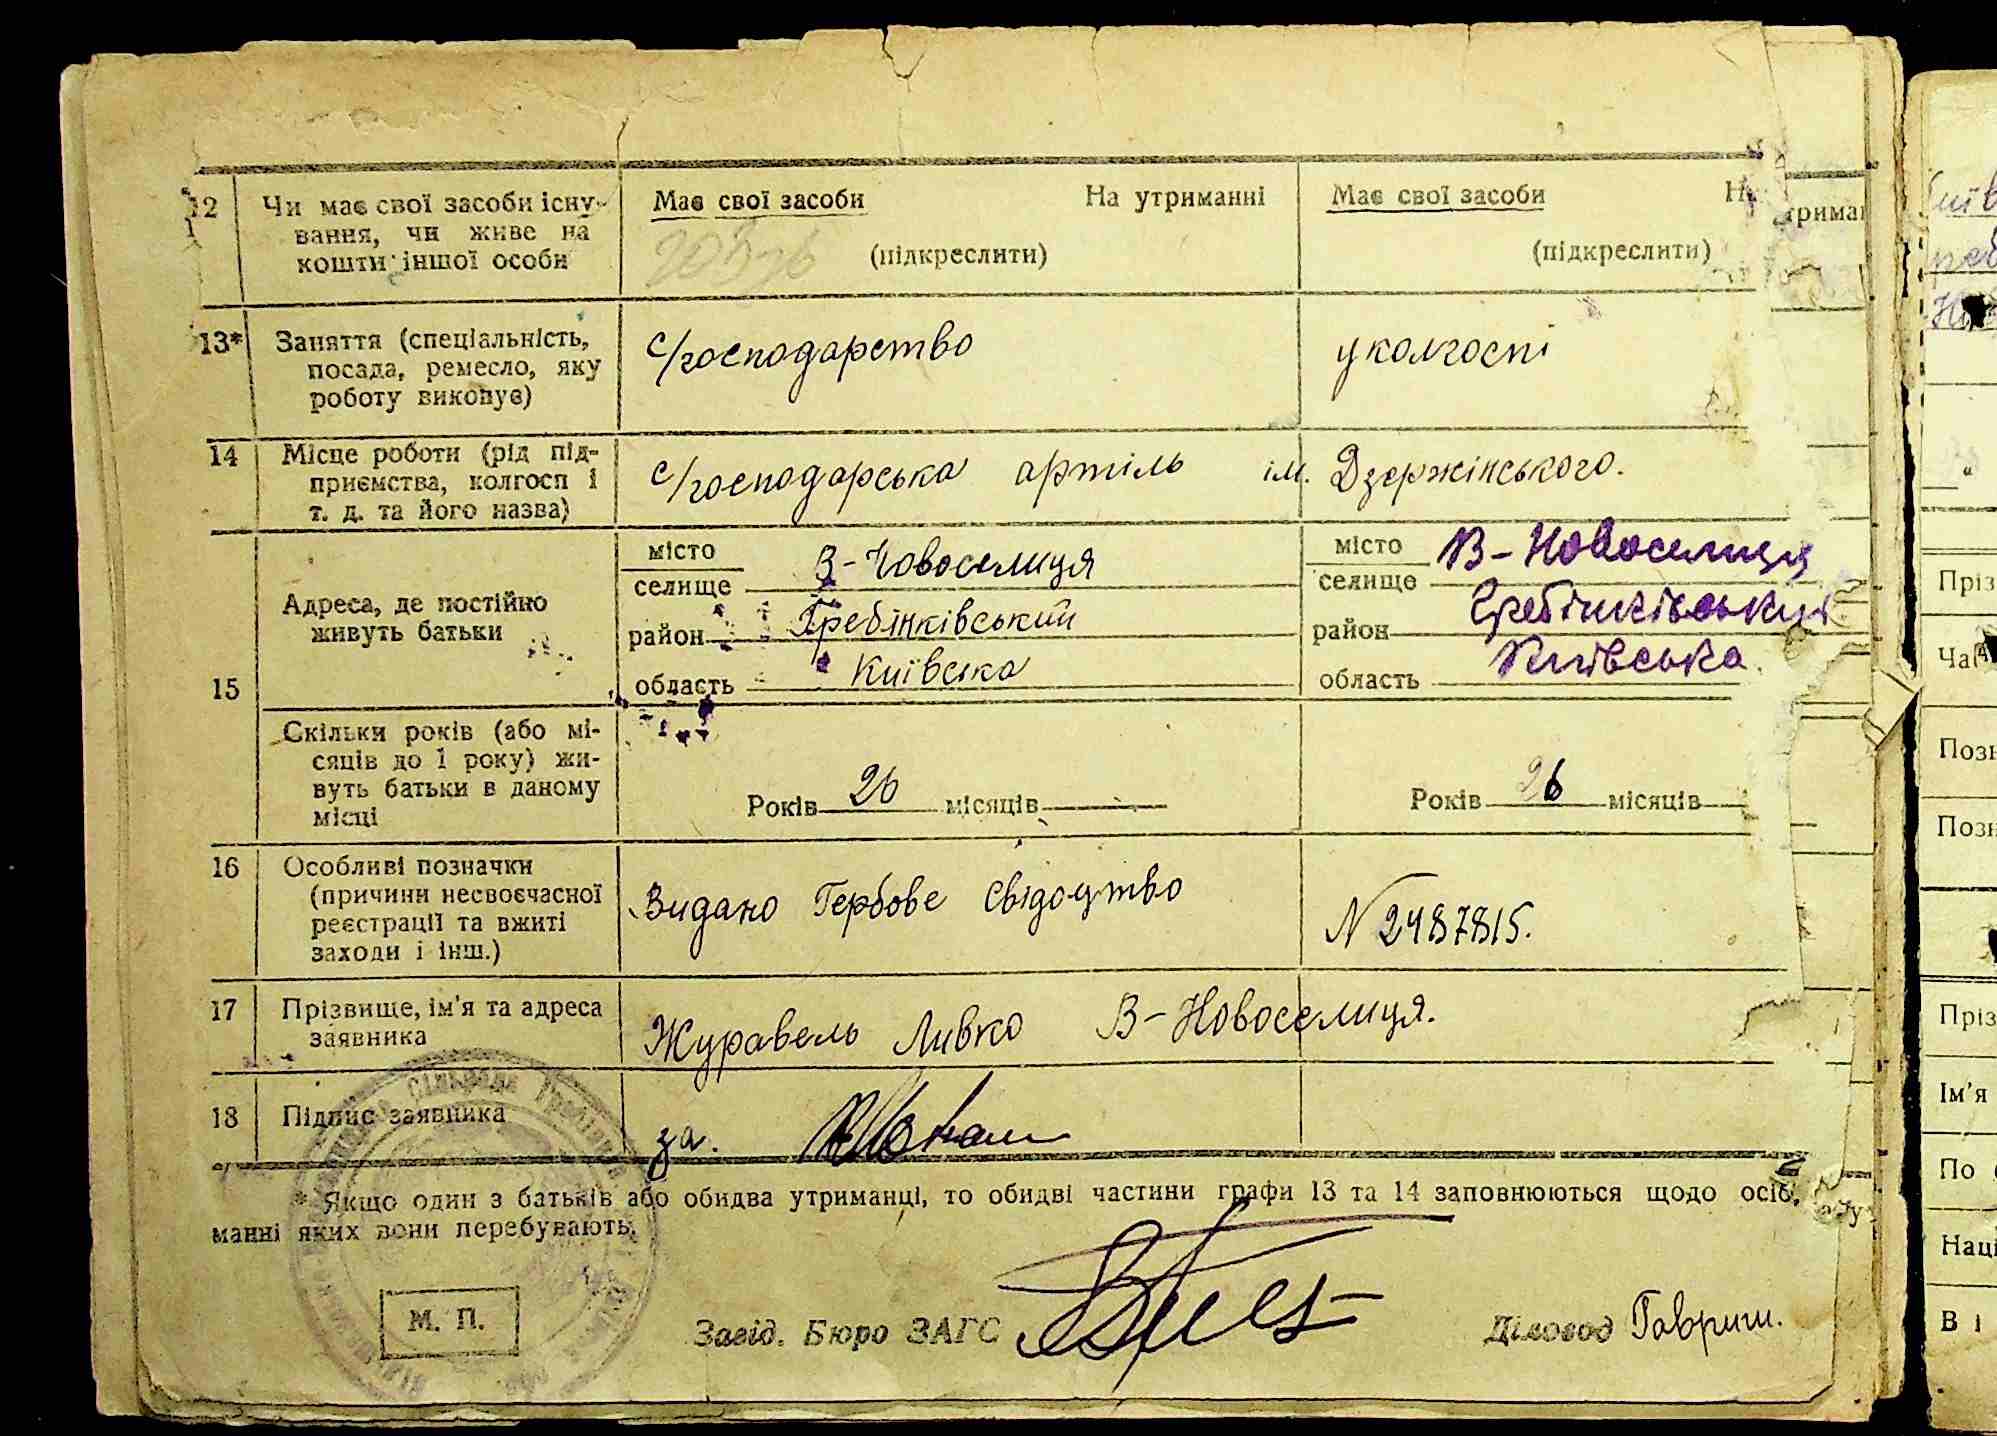 12 Чи має свої засоби існу- Має свої засоби На утриманні Має свої засоби
вання, чи живе на
кошти іншої особи (підкреслити) (підкреслити)
13* Заняття (спеціальність, с/господарство у колгоспі
посада, ремесло, яку
роботу виконує)
14 Місце роботи (рід під- с/господарська артіль ім. Дзержінського.
приємства, колгосп і
т. д. та його назва)
15 Адреса, де постійно
живуть батьки
місто В-Новоселиця місто В-Новоселиця
селище селище
район Гребінківський район Гребінківський
область Київська область Київська
Скільки років (або мі-
сяців до 1 року) жи-
вуть батьки в даному
місці
Років 26 місяців Років 26 місяців
16 Особливі позначки
(причини несвоєчасної Видано Гербове свідоцтво N 2487815.
реєстрації та вжиті
заходи і інш.)
17 Прізвище, ім'я та адреса Журавель Ливко В-Новоселиця.
заявника
18 Підпис заявника за.
* Якщо один з батьків або обидва утриманці, то обидві частини графи 13 та 14 заповнюються щодо осіб,
манні яких вони перебувають.
М. П.
Завід. Бюро ЗАГС Діловод Гавриш.
Пріз
Час
Позн
Позн
Пріз
Ім'я
По
Наці
Ві